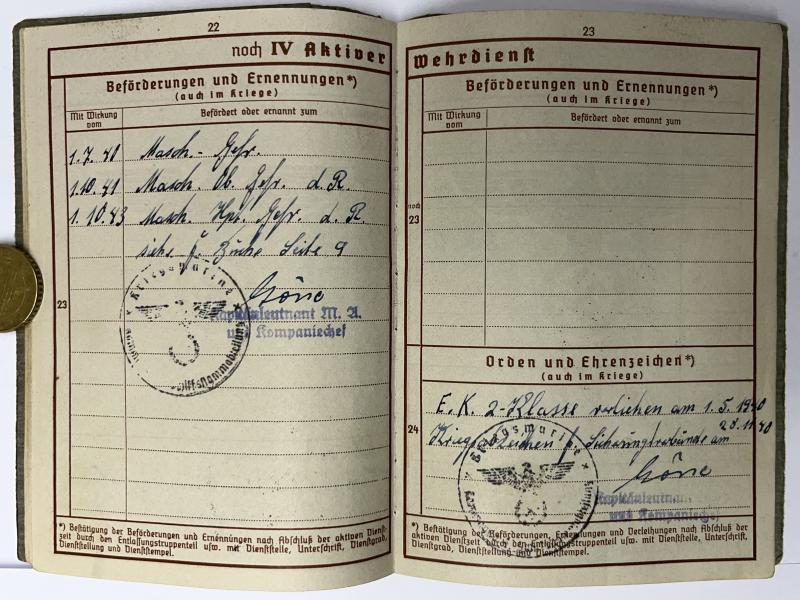 22
noch IV Aktiver
Beförderungen und Ernennungen*)
(auch im Kriege)
Mit Wirkung vom
Befördert oder ernannt zum
1.7.40 Masch.- Gefr.
1.10.41 Masch. Ob. Gefr. d. R.
1.10.43 Masch. Hpt. Gefr. d. R.
siehe Seite 9
23
Kriegsmarine
Kapitänleutnant M. A.
und Kompaniechef
*) Bestätigung der Beförderungen und Ernennungen nach Abschluß der aktiven Dienst-
zeit durch den Entlassungstruppenteil usw. mit Dienststelle, Unterschrift, Dienstgrad,
Dienststellung und Dienststempel.
23
Wehrdienst
Beförderungen und Ernennungen*)
(auch im Kriege)
Mit Wirkung vom
Befördert oder ernannt zum
noch
23
Orden und Ehrenzeichen*)
(auch im Kriege)
E.K. 2-Klasse verliehen am 1.5.1940
24
Kriegsabzeichen f. Sicherungsverbände am 28.11.40
Kriegsmarine
Kapitänleutnant
und Kompaniechef
*) Bestätigung der Beförderungen, Ernennungen und Verleihungen nach Abschluß der
aktiven Dienstzeit durch den Entlassungstruppenteil usw. mit Dienststelle, Unterschrift,
Dienstgrad, Dienststellung und Dienststempel.